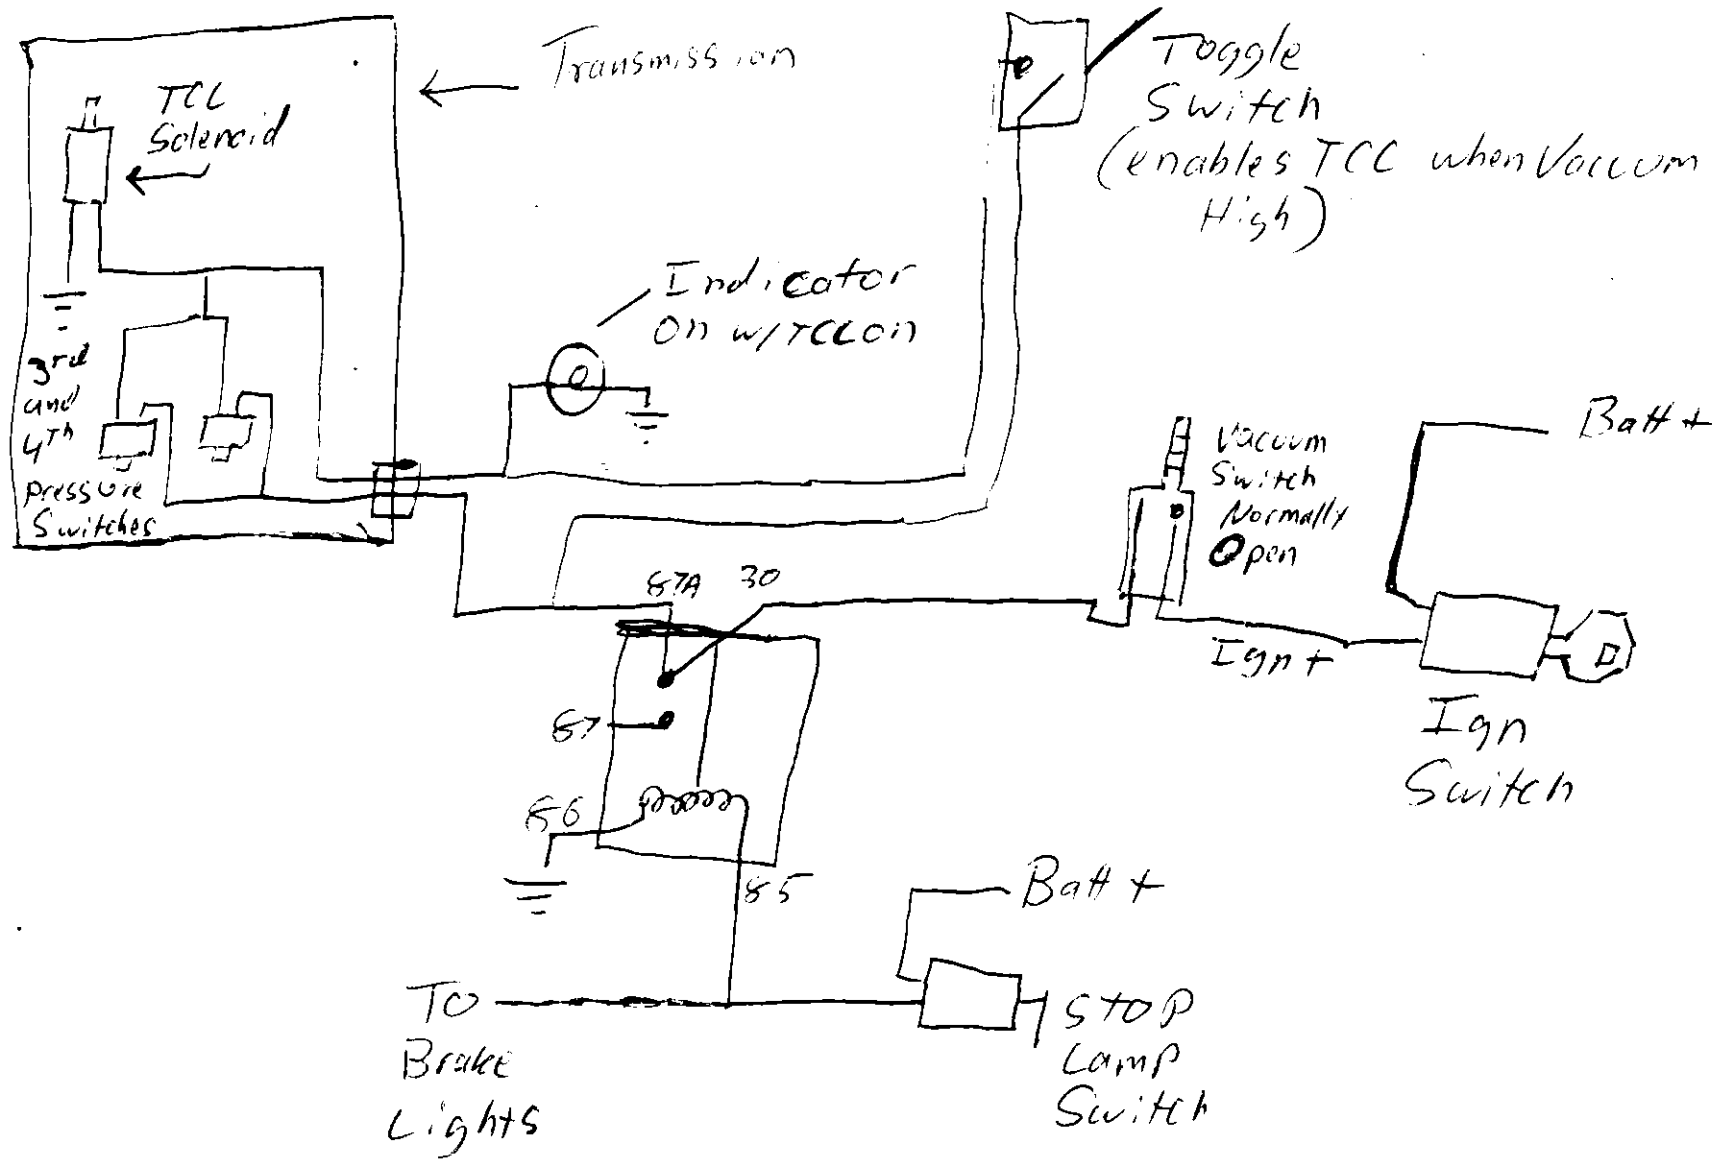 TCC
Solenoid
Transmission
Toggle
Switch
(enables TCC when Vaccum
High)
Indicator
On w/TCC on
3rd
and
4Th
pressure
Switches
Vacuum
Switch
Normally
Open
Batt +
87A 30
Ign +
87
Ign
Switch
86
85
Batt +
To
Brake
Lights
Stop
Lamp
Switch